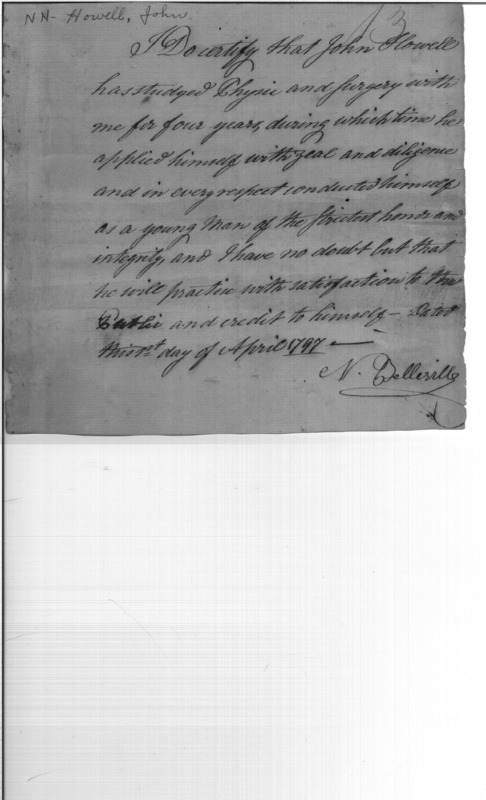 NN- Howell, John.
13
I Do certify that John Howell
has studyed Physic and Surgery with
me for four years, during which time he
applied himself with zeal and diligence
and in every respect conducted himself
as a young Man of the strictest honor and
integrity, and I have no doubt but that
he will practise with satisfaction to the
Public and credit to himself — Dated
this 1st day of April 1797 —
N. Belleville